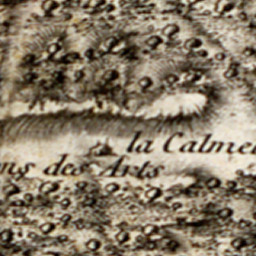 la Calme
ns des Arts